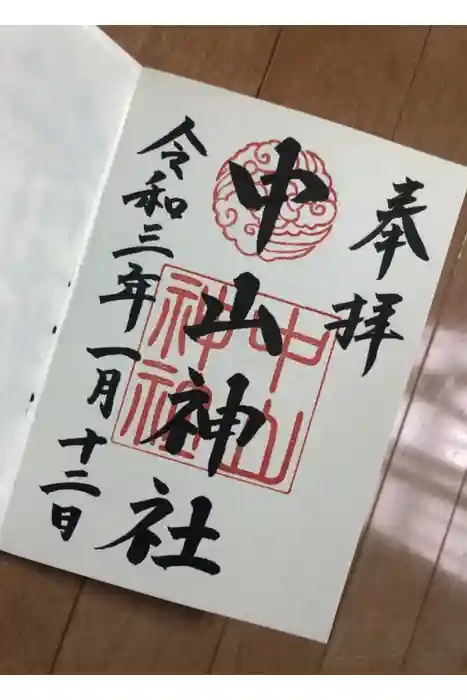 奉拝
中山神社
中山
神社
令和三年一月十三日